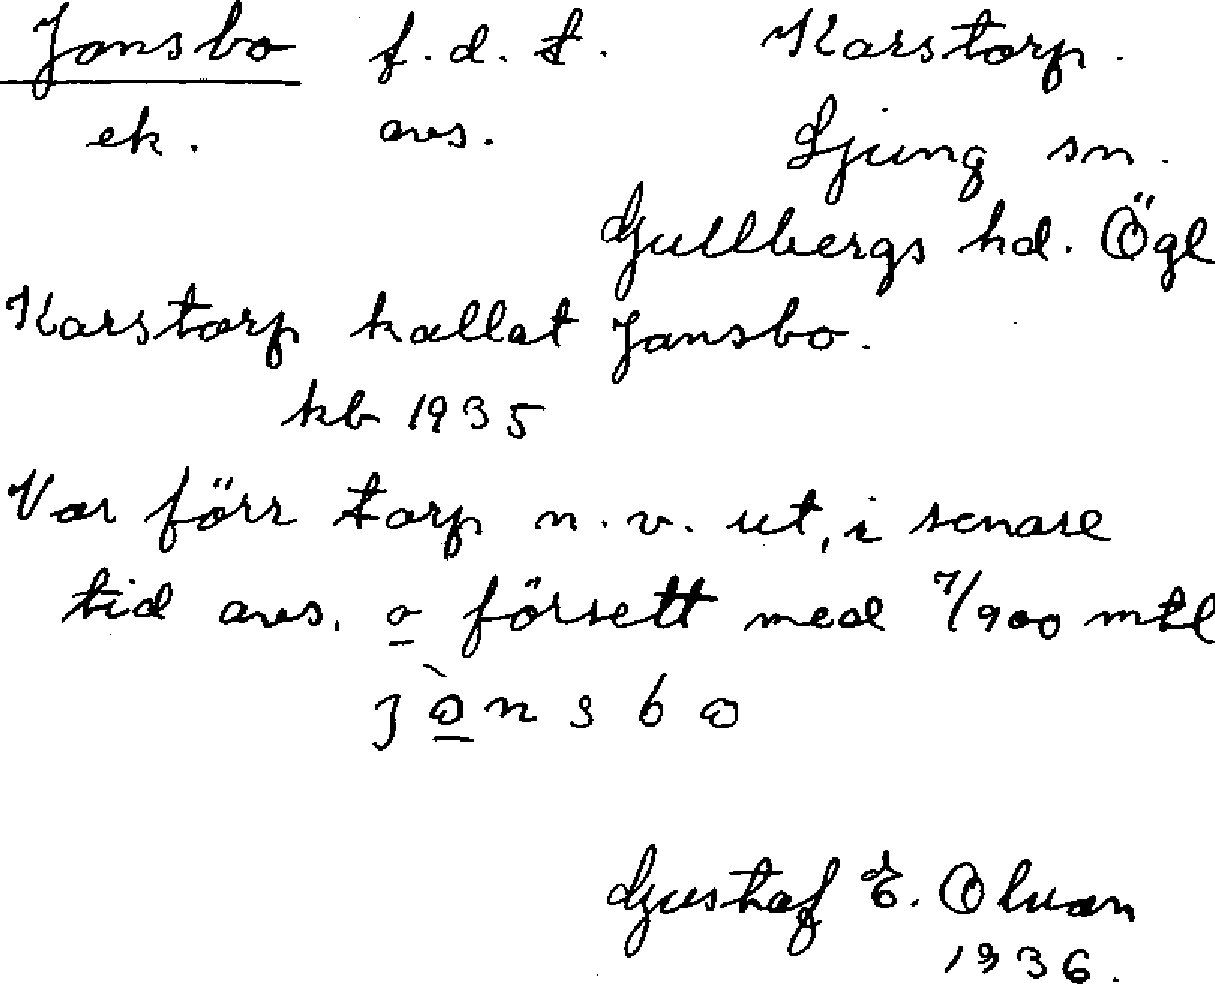 Jansbo f.d.t. Karstorp.
ek. avs. Ljung sn.
Gullbergs hd. Ögl
Karstorp kallat Jansbo.
kb 1935
Var förr torp n.v. ut, i senare
tid avs. o försett med 7/900 mtl
Gustaf E.
1936.